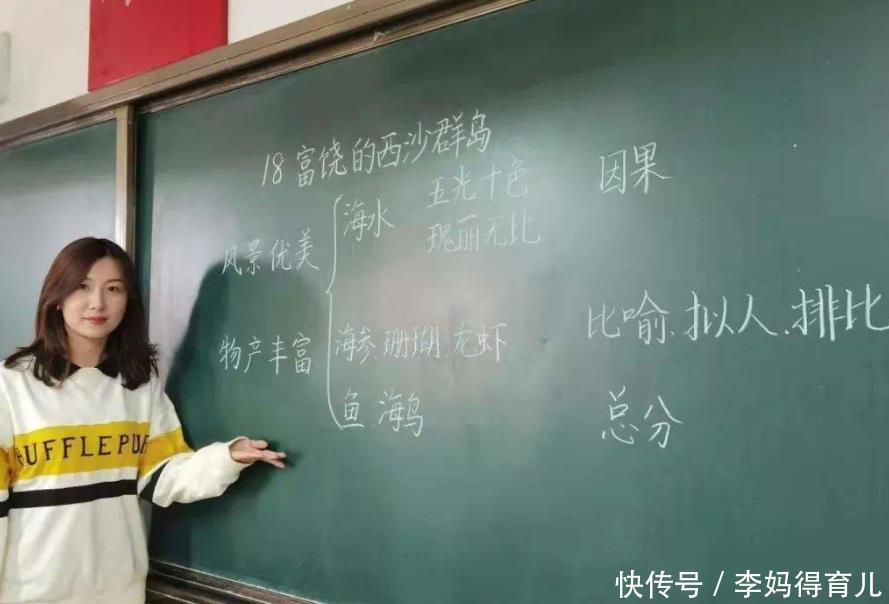 18富饶的西沙群岛
因果
五光十色
海水
瑰丽无比
风景优美
比喻、拟人、排比
物产丰富
海参、珊瑚、龙虾
鱼、海鸟
总分
UFFLEPU
快传号 / 李妈得育儿